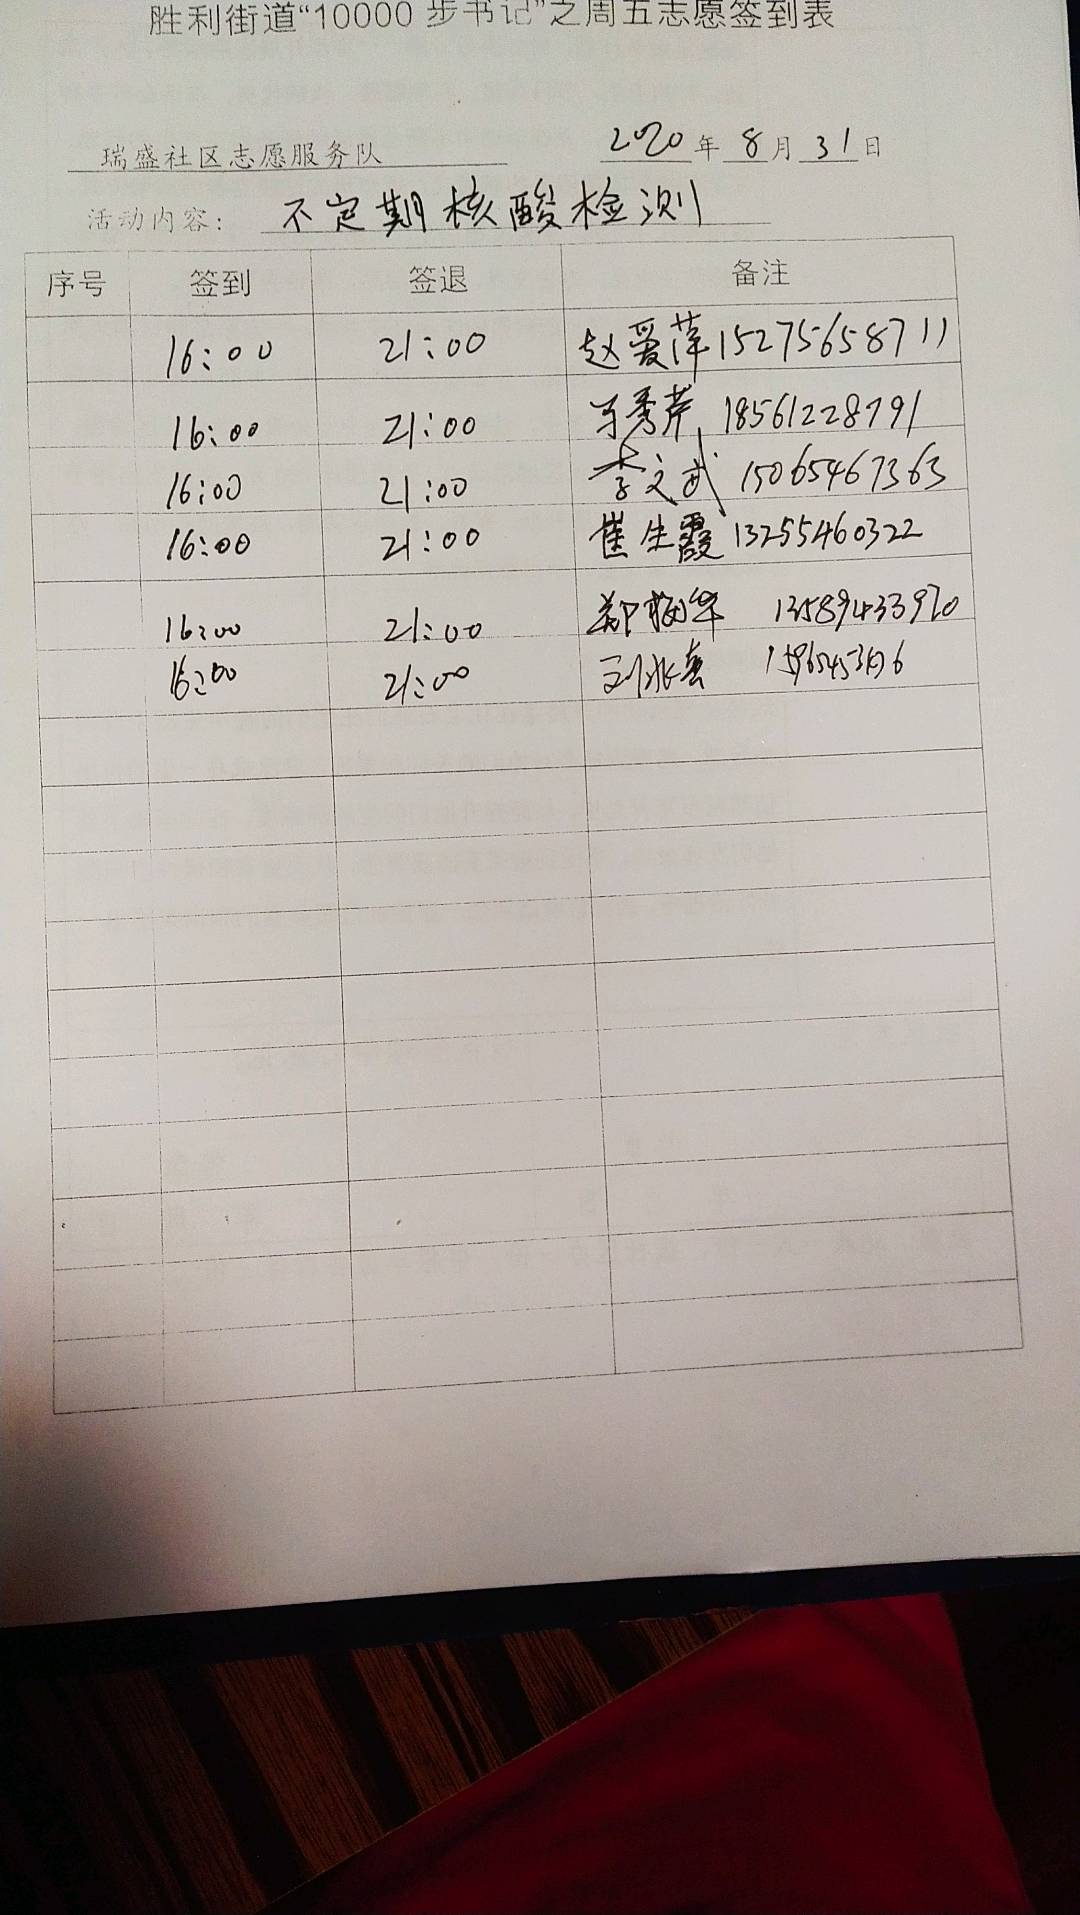 胜利街道“10000 步书记”之周五志愿签到表
瑞盛社区志愿服务队 2020年 8月31日
活动内容: 不定期核酸检测
序号 签到 签退 备注
16:00 21:00 赵爱萍15275658711
16:00 21:00 秀芹 18561228791
16:00 21:00 李文武 15065467363
16:00 21:00 崔生霞 13255460322
16:00 21:00 郑梅华 13589433970
16:00 21:00